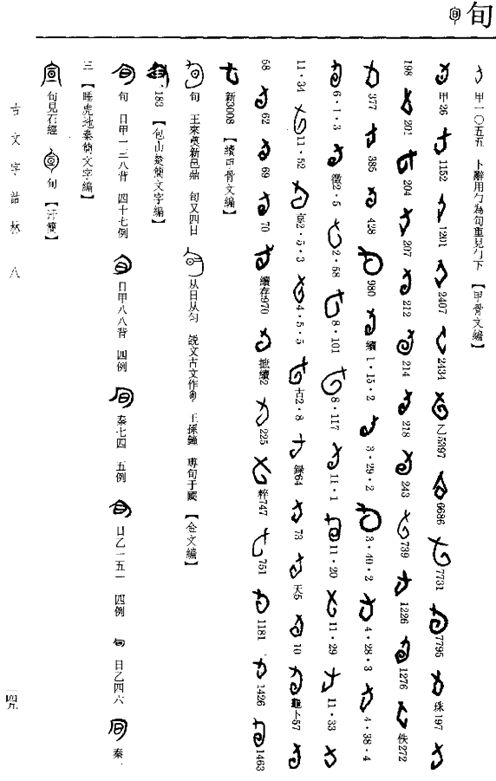 旬
甲一〇五五　卜辭用勹為旬重見勹下　【甲骨文編】
甲26　1152　1201　2407　2434　乙5397　6686　7731　7795　珠197
198　201　204　207　212　214　218　243　739　1226　1276　佚272
377　385　428　980　續1·15·2　3·29·2　3·40·2　4·28·3　4·38·4
6·1·3　徵2·5　2·58　8·101　8·117　11·1　11·20　11·29　11·33
11·34　11·52　京2·5·3　4·5·5　古2·8　錄64　73　天5　10　龜卜57
68　62　69　70　續存970　摭續2　225　粹747　751　1181　1426　1463
新3008　【續甲骨文編】
旬　王來奠新邑鼎　旬又四日　从日从勹　説文古文作　王孫鐘　旬于國　【金文編】
183　【包山楚簡文字編】
旬　日甲一三八背　四十七例　日甲八八背　四例　秦七四　五例　日乙一五一　四例　日乙四六　秦
三　【睡虎地秦簡文字編】
旬見石經　旬　【汗簡】
古文字詁林　八
一四九